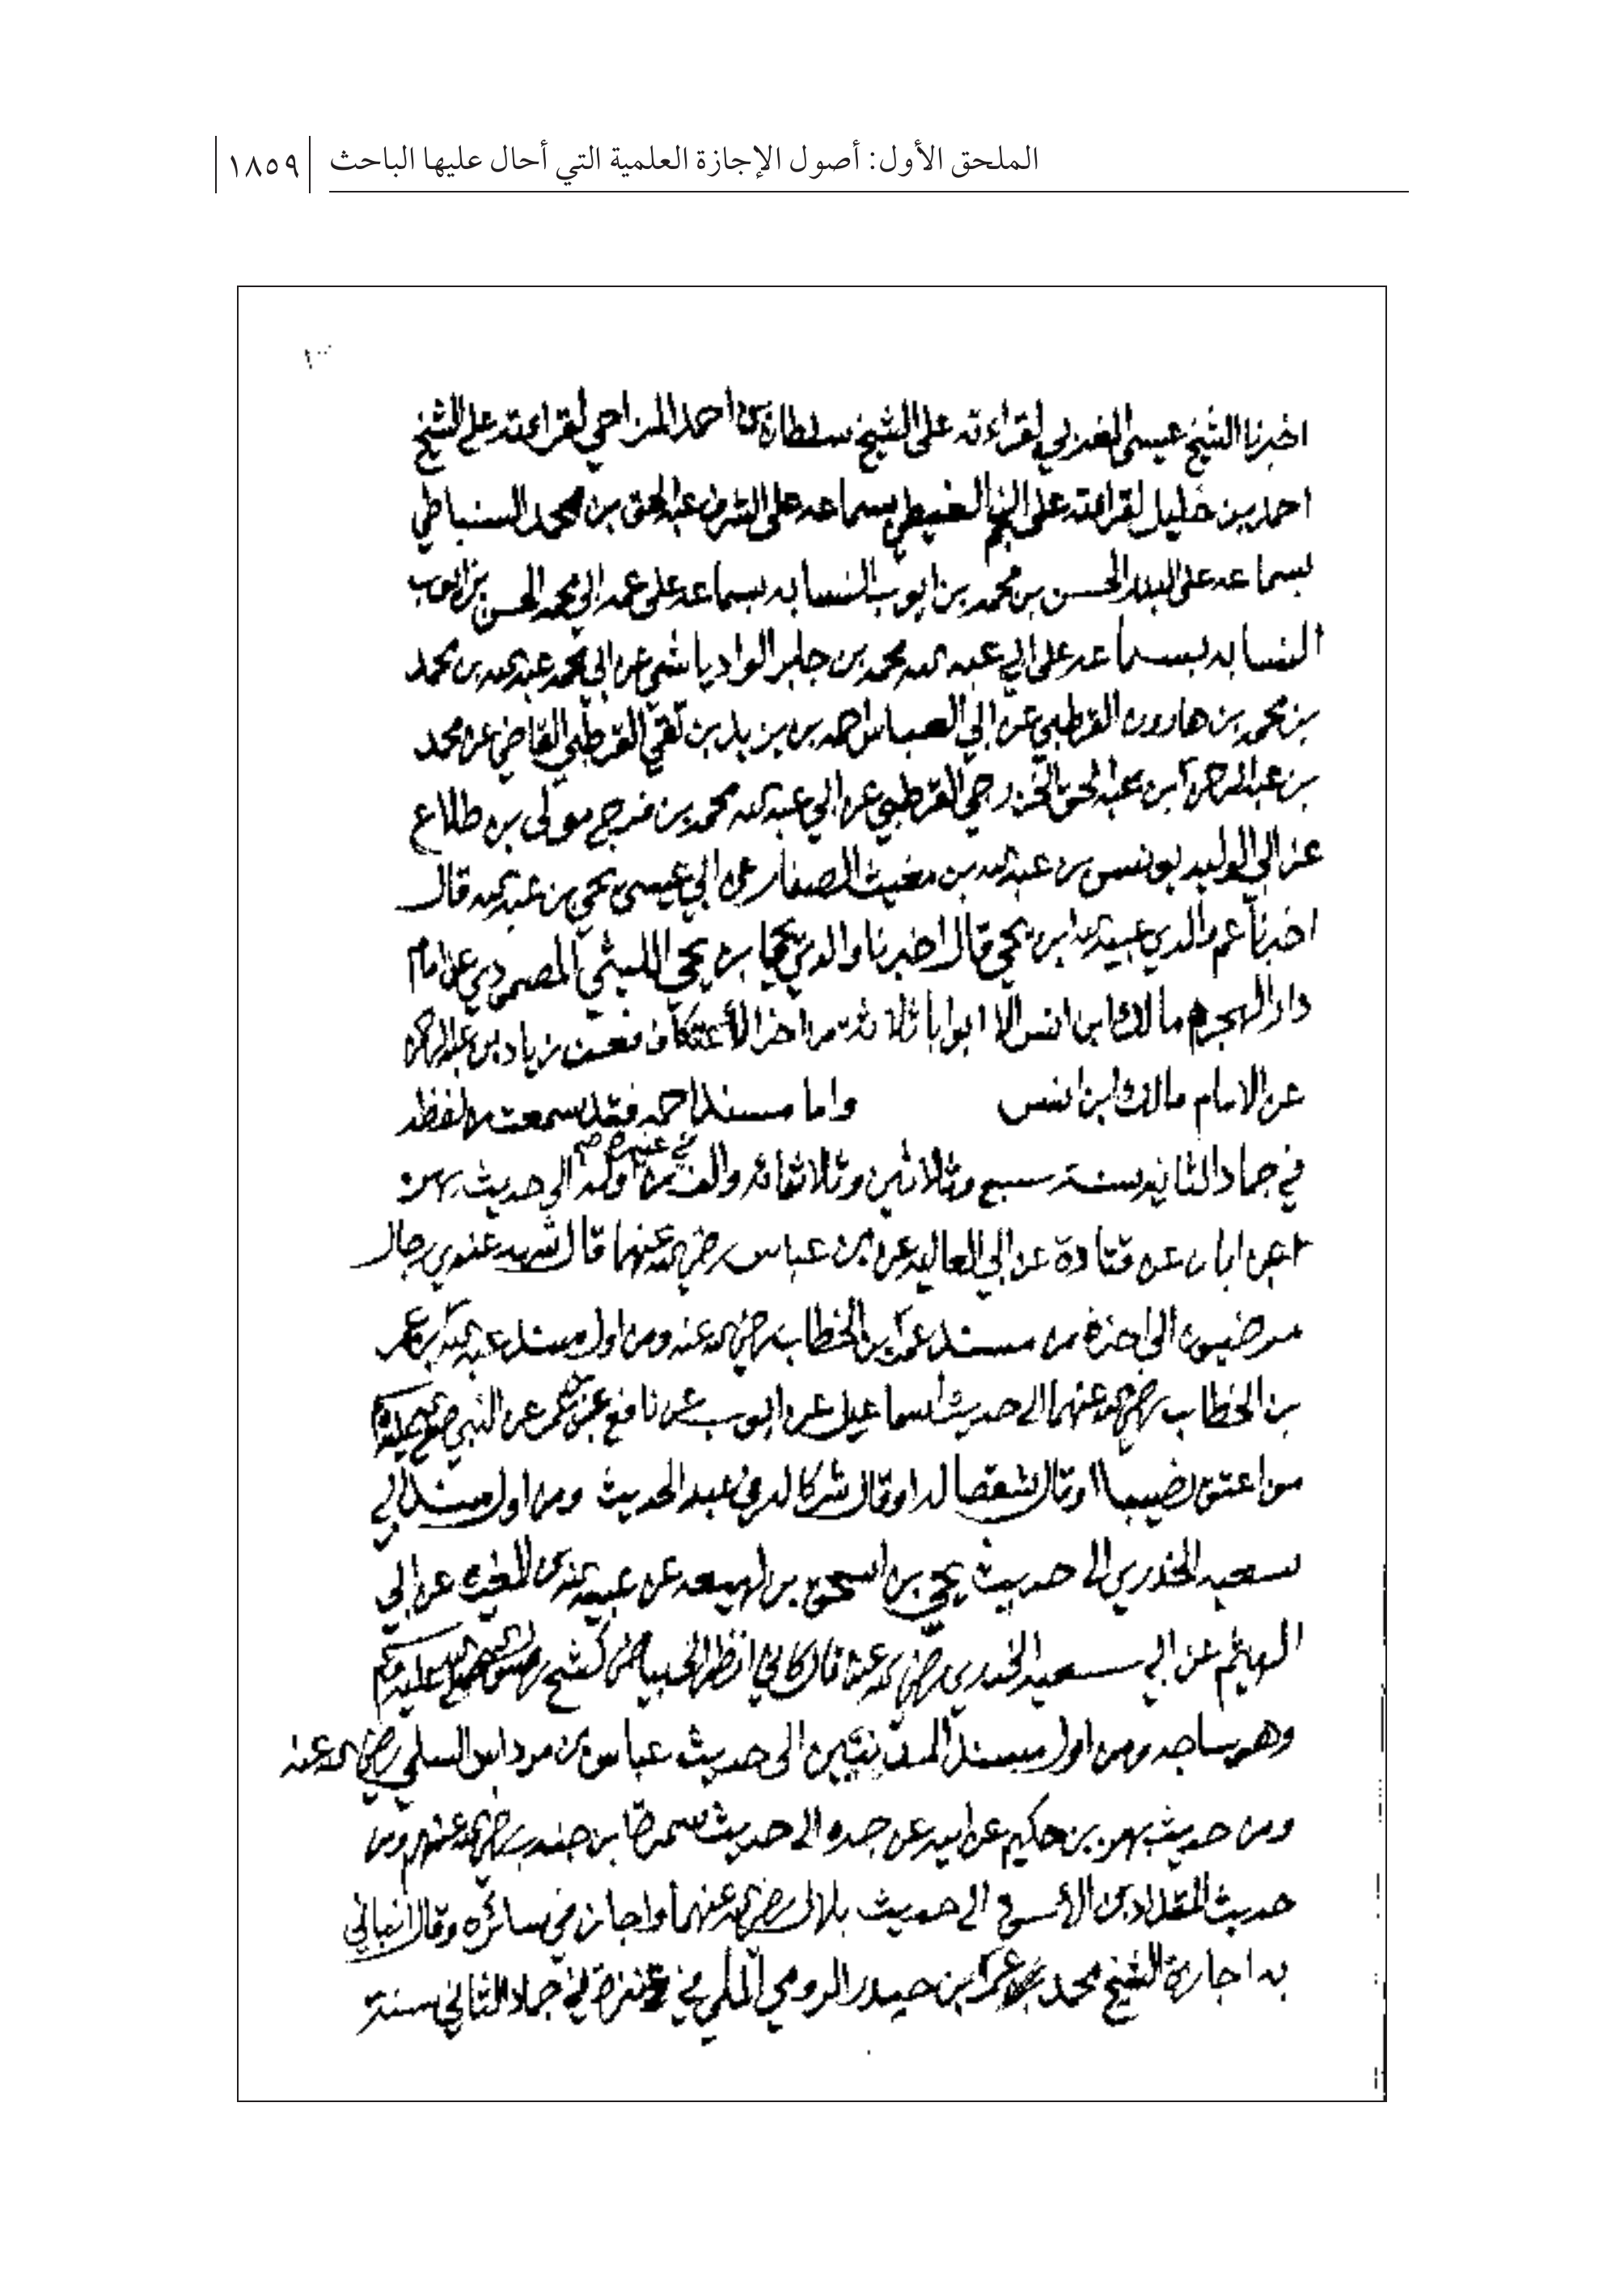 الملحق الأول: أصول الإجازة العلمية التي أحال عليها الباحث ١٨٥٩
اخبرنا الشيخ عيسى المغربي لقراءته على الشيخ سلطان بن احمد المزاحي لقراءته على الشيخ
احمد بن خليل لقراءته على النجم الغيطي بسماعه على الشرف عبد الحق بن محمد السنباطي
بسماعه على البدر الحسن بن محمد بن ايوب النسابه بسماعه على عمه ابي محمد الحسن بن ايوب
النسابه بسماعه على ابي عبد الله محمد بن جابر الوادياشي عن ابي محمد عبد الله بن محمد
بن محمد بن هارون القرطبي عن ابي العباس احمد بن يزيد بن تقي القرطبي القاضي عن محمد
بن عبد الرحمن ابن عبد الحق الخزرجي القرطبي عن ابي عبد الله محمد بن فرج مولى بن طلاع
عن ابي الوليد يونس بن عبد الله بن مغيث الصفار عن ابي عيسى يحي بن عبد الله قال
اخبرنا عم والدي عبيد الله ابن يحي قال اخبرنا والدي يحيا بن يحي الليثي المصمودي عن امام
دار الهجره مالك ابن انس الا ابوابا ثلاثة من اخر الاعتكاف فعن زياد بن عبد الرحمن
عن الامام مالك ابن انس واما مسند احمد فقد سمعت بلفظه
في جماد الثانيه سنة سبع وثلاثين وثلاثمائه والف من اوله الى حديث بهز
عن ابان عن قتادة عن ابي العاليه عن ابن عباس رضي الله عنهما قال شهد عندي رجال
مرضيون الى اخره من مسند عمر ابن الخطاب رضي الله عنه ومن اول مسند عبد الله بن عمر
بن الخطاب رضي الله عنهما الى حديث اسماعيل عن ايوب عن نافع عن بن عمر عن النبي صلى الله عليه وسلم
من اعتق نصيبا او قال شقصا له او قال شركا له في عبد الحديث ومن اول مسند ابي
سعيد الخدري الى حديث يحي بن اسحق بن لهيعه عن عبيد الله بن المغيره عن ابي
الهيثم عن ابي سعيد الخدري رضي الله عنه قال كاني انظر الى بياض كشح رسول الله صلى الله عليه وسلم
وهو ساجد ومن اول مسند المدنيين الى حديث عباس بن مرداس السلمي رضي الله عنه
ومن حديث بهز بن حكيم عن ابيه عن جده الى حديث سمرة ابن جندب رضي الله عنهم ومن
حديث المقداد بن الأسود الى حديث بلال رضي الله عنهما واجازني سائره وقال انباني
به اجازة الشيخ محمد عمر ابن حيدر الرومي الملي في عنيزة في جماد الثاني سنة